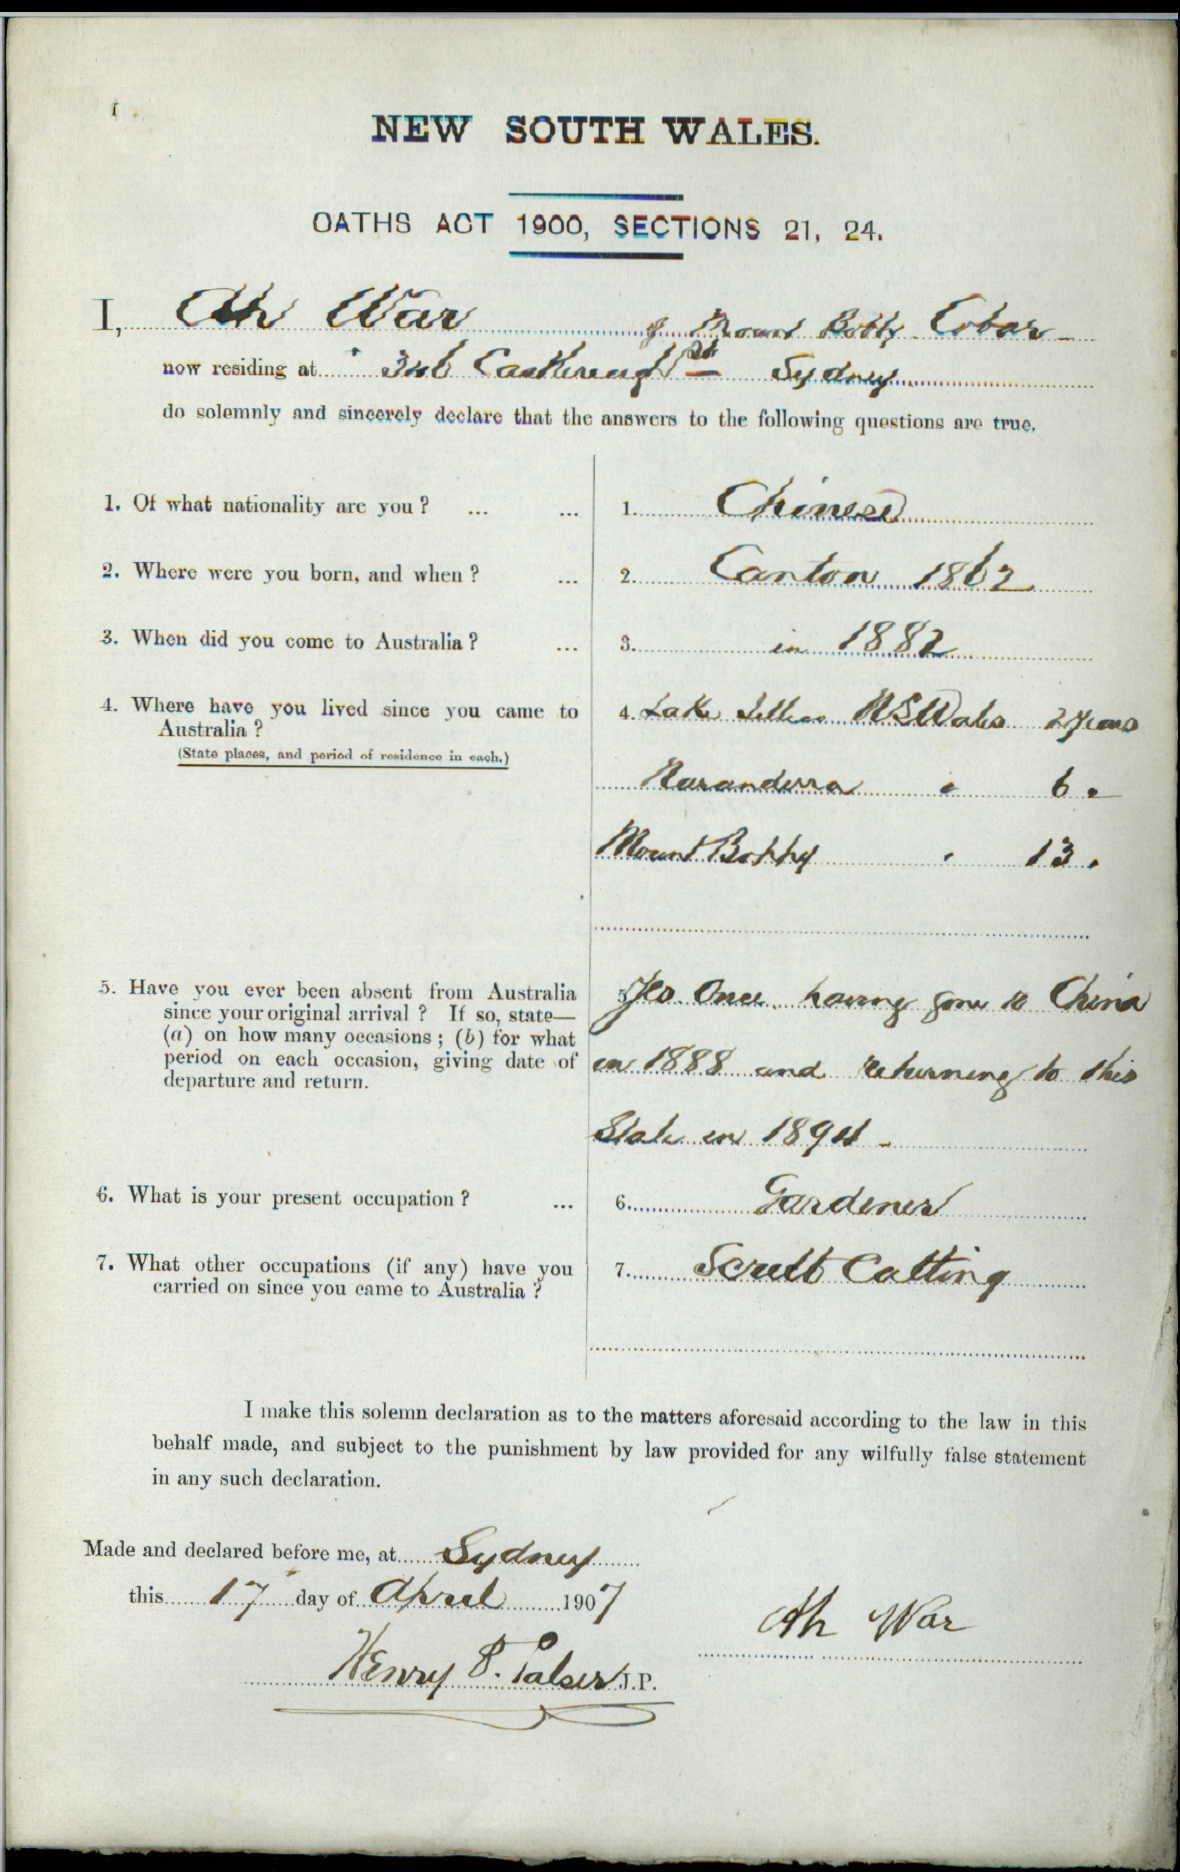 NEW SOUTH WALES.
OATHS ACT 1900, SECTIONS 21, 24.
I, Ah War of Mount Boppy Cobar
now residing at 346 Castlereagh St Sydney
do solemnly and sincerely declare that the answers to the following questions are true.
1. Of what nationality are you? ... ... 1. Chinese
2. Where were you born, and when? ... 2. Canton 1862
3. When did you come to Australia? ... 3. in 1882
4. Where have you lived since you came to 4. Lake NSWales 2 years
Australia?
(State places, and period of residence in each.)
Naranderra " 6 "
Mount Boppy " 13 "
5. Have you ever been absent from Australia 5. Yes Once having gone to China
since your original arrival? If so, state—
(a) on how many occasions; (b) for what
period on each occasion, giving date of in 1888 and returning to this
departure and return.
State in 1894 -
6. What is your present occupation? ... 6. Gardener
7. What other occupations (if any) have you 7. Scrub Cutting
carried on since you came to Australia?
I make this solemn declaration as to the matters aforesaid according to the law in this
behalf made, and subject to the punishment by law provided for any wilfully false statement
in any such declaration.
Made and declared before me, at Sydney
this 17 day of April 1907
Ah War
Henry P. Palser J.P.